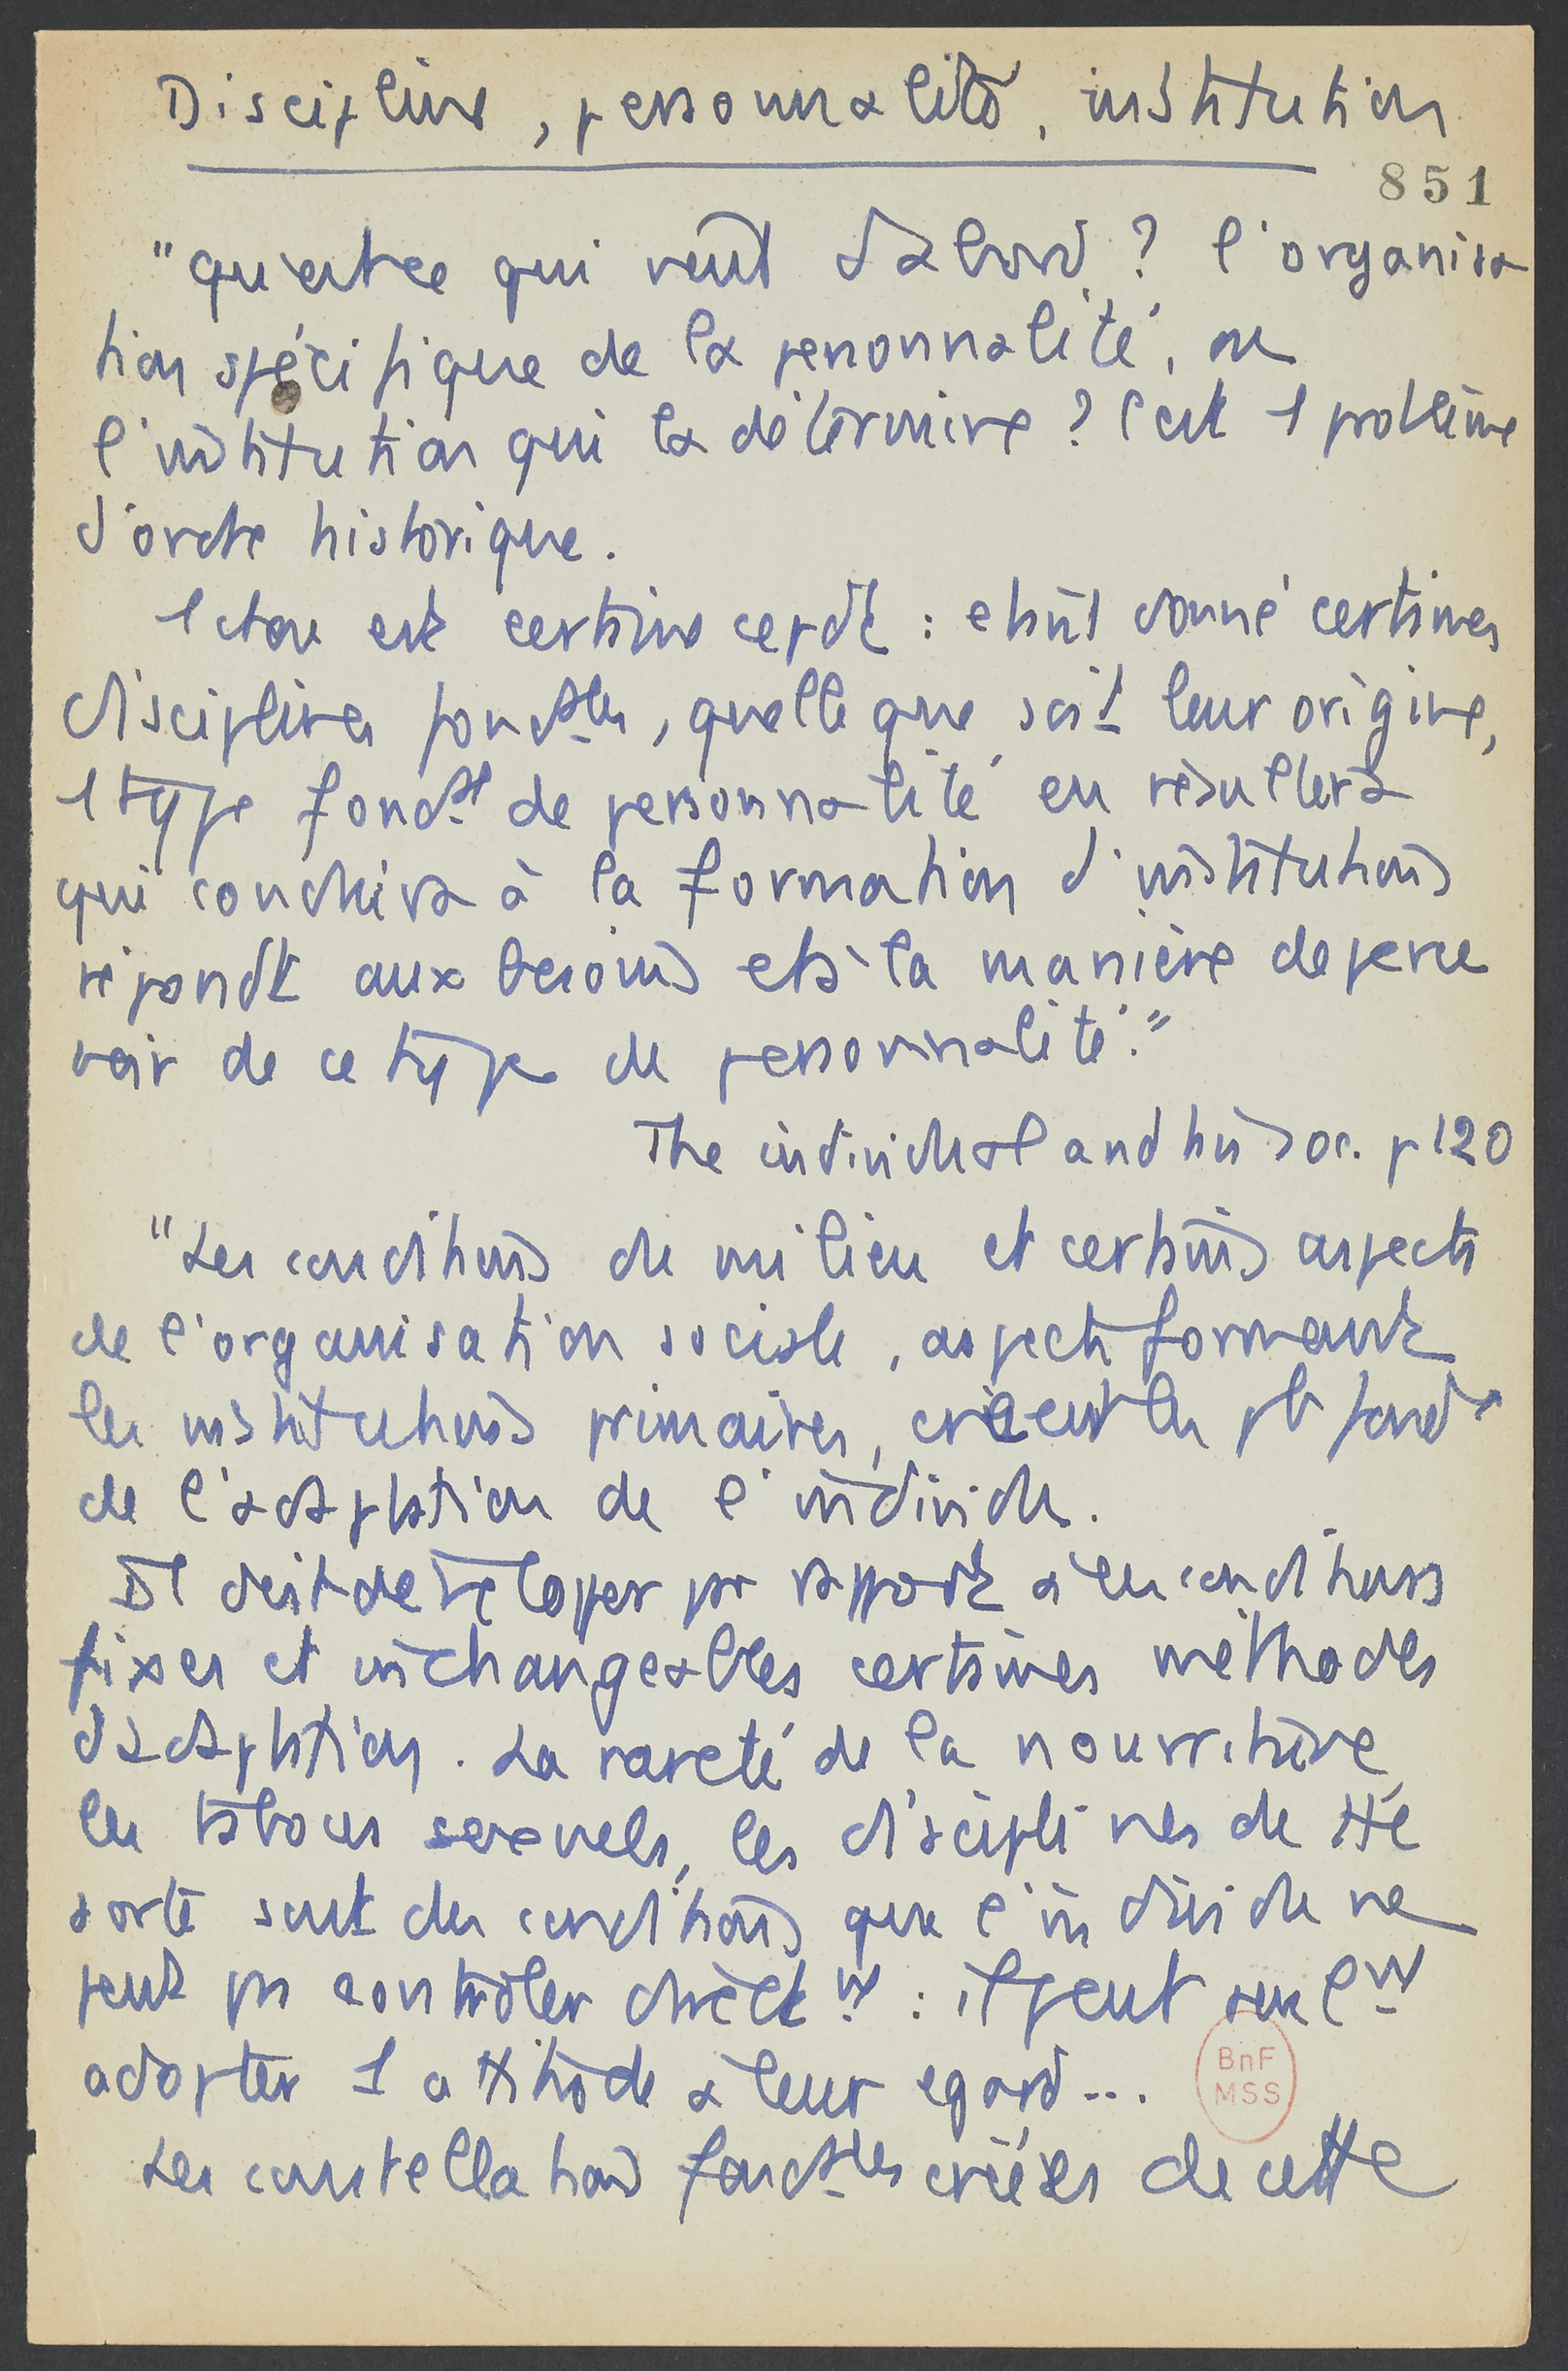 Discipline, personnalité, institution
851
"qu'est ce qui vient d'abord ? l'organisa
tion spécifique de la personnalité, ou
l'institution qui la détermine ? C'est 1 problème
d'ordre historique.
1 chose est certaine cepdt : étant donné certaines
disciplines fondtales, quelle que soit leur origine,
1 type fondtal de personnalité en résultera
qui conduira à la formation d'institutions
répondt aux besoins et à la manière de perce
voir de ce type de personnalité."
The individual and his soc. p 120
"Les conditions de milieu et certains aspects
de l'organisation sociale, aspects formant
les institutions primaires, créent les pb fondx
de l'adaptation de l'individu.
Il doit développer par rapport à ces conditions
fixes et inchangeables certaines méthodes
d'adaptation. La rareté de la nourriture,
les tabous sexuels, les disciplines de tte
sorte sont des conditions que l'individu ne
peut pas contrôler directnt : il peut seulnt
adopter 1 attitude à leur egard...
BnF
MSS
Les constellations fondtales créées de cette